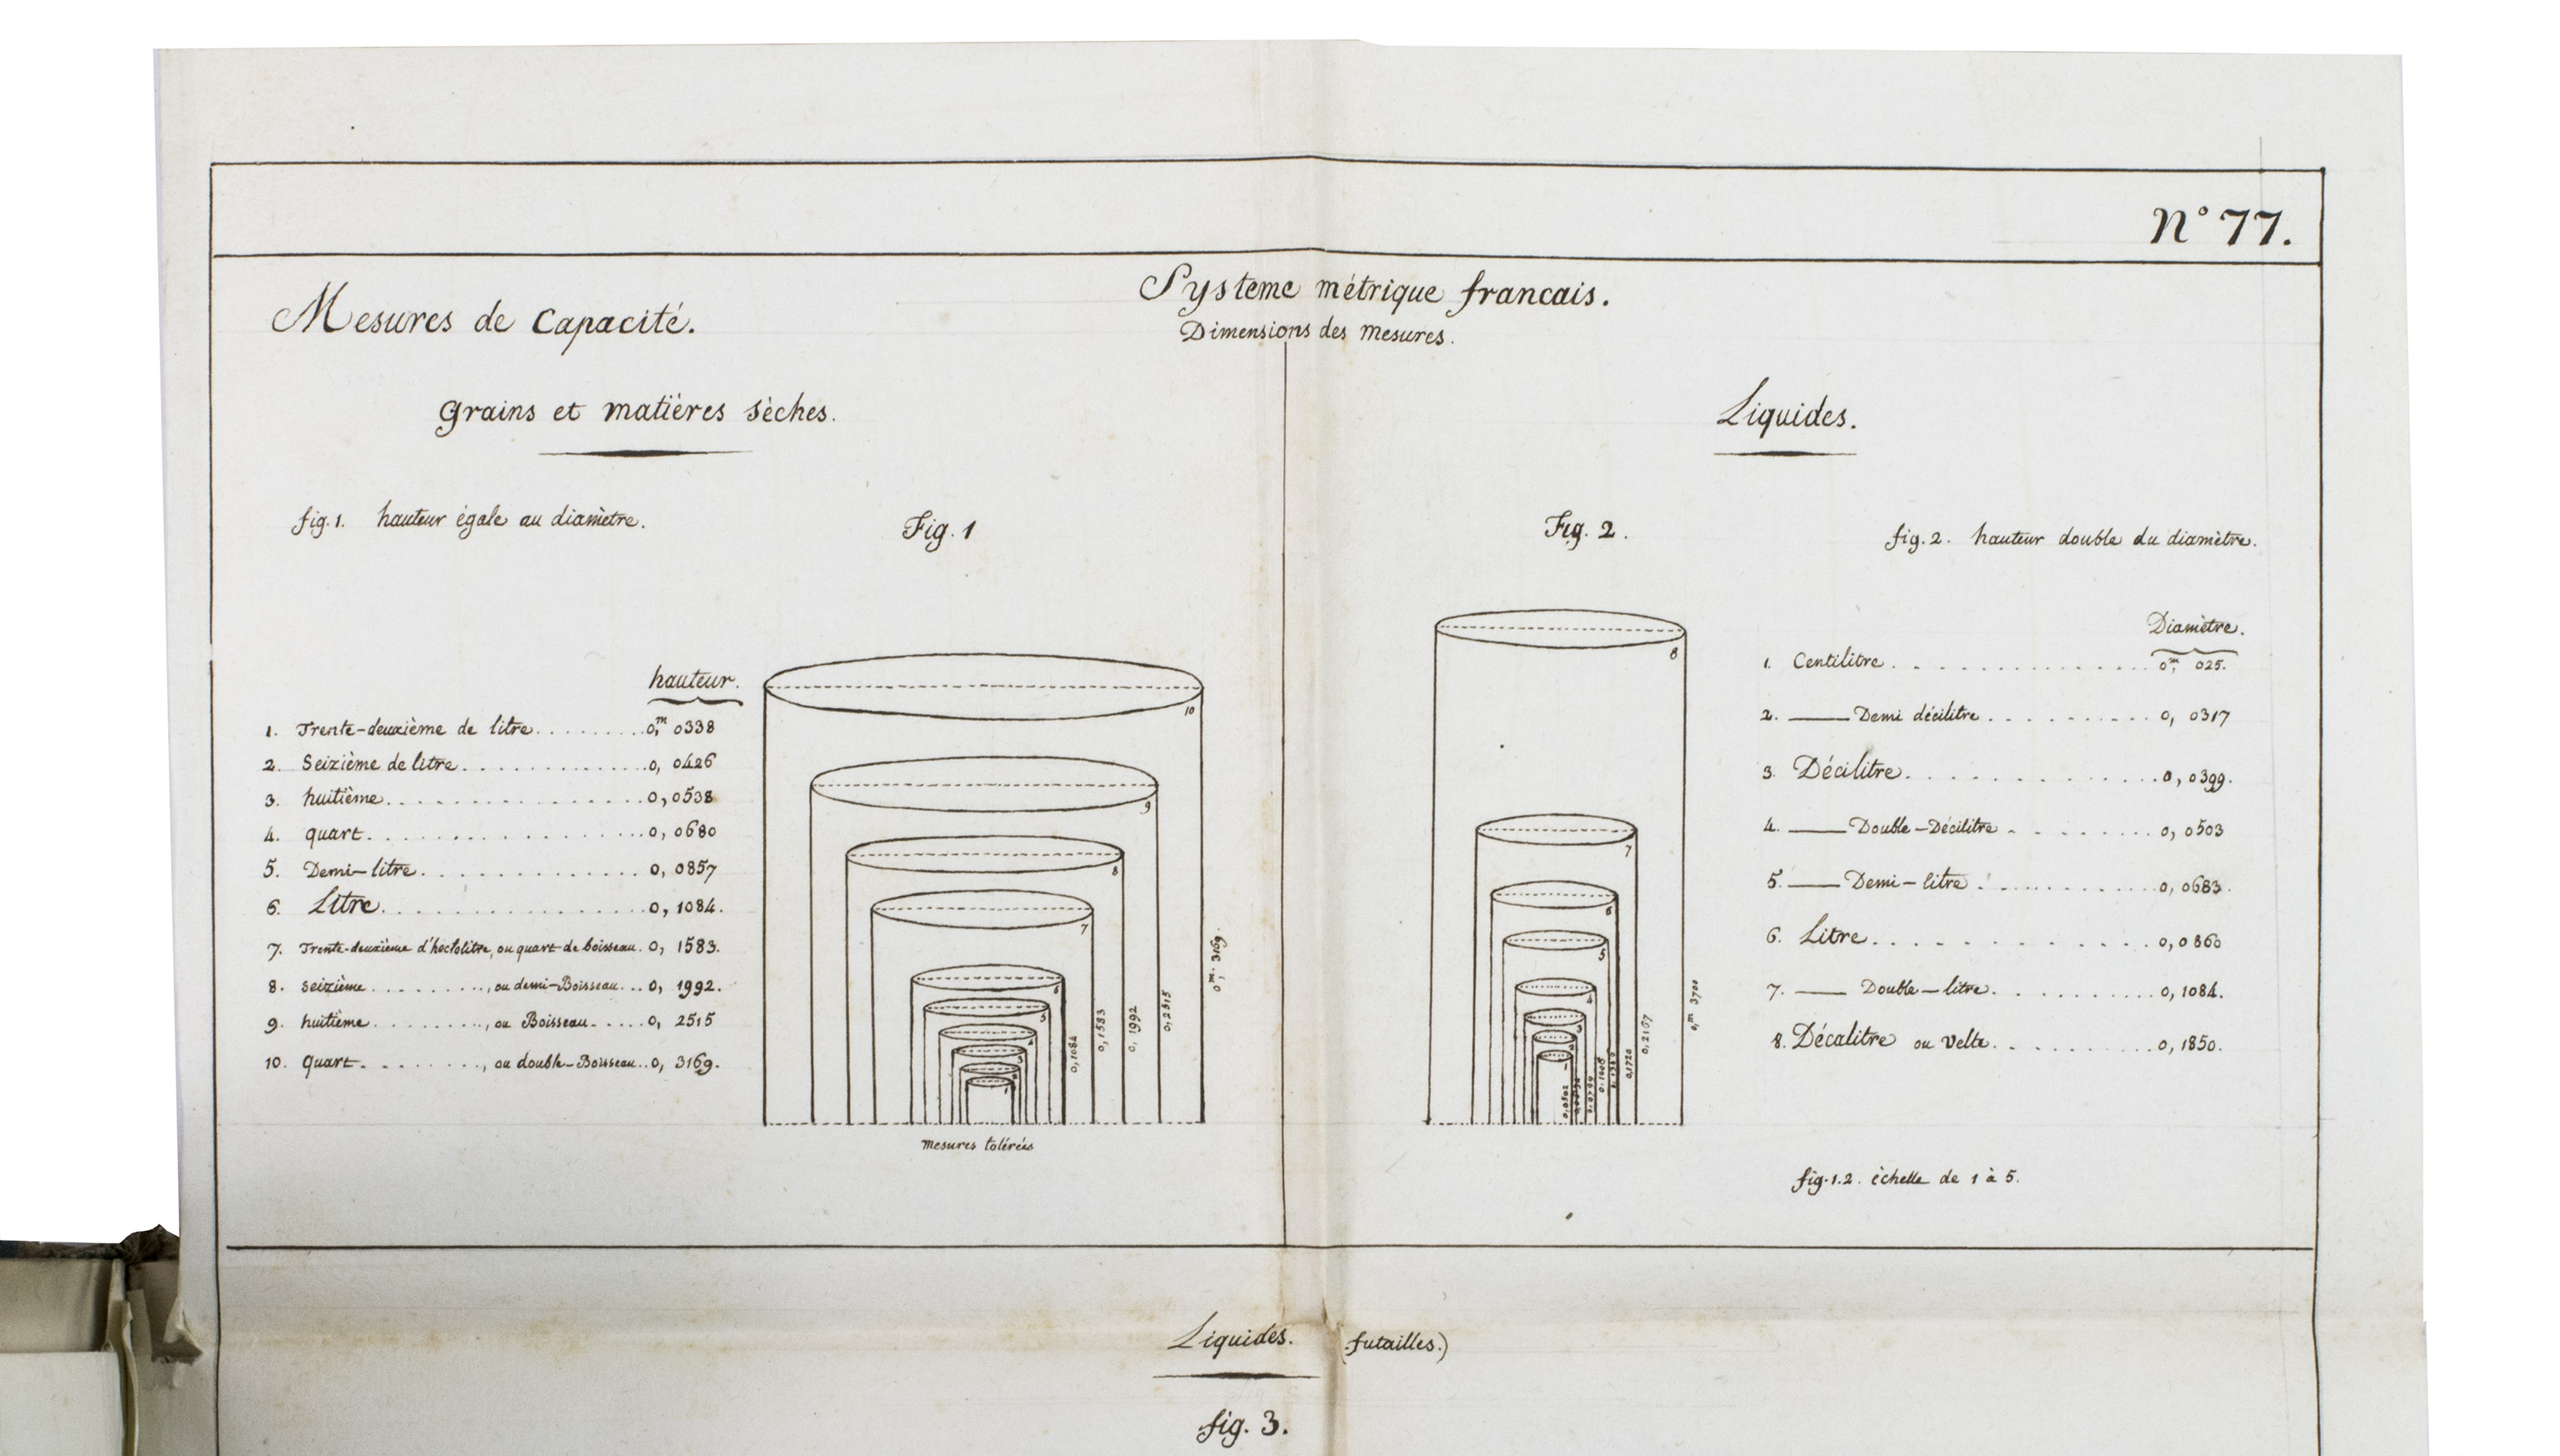 N° 77.
Systeme métrique francais.
Dimensions des mesures.
Mesures de Capacité.
grains et matières sèches.
fig. 1. hauteur égale au diamètre.
Fig. 1
hauteur.
1. Trente-deuxième de litre. . . . . . . . . 0,m 0338
2. Seizième de litre. . . . . . . . . . . . . 0, 0426
3. huitième. . . . . . . . . . . . . . . . 0,0538
4. quart. . . . . . . . . . . . . . . . . . 0, 0680
5. Demi-litre. . . . . . . . . . . . . . 0, 0857
6. Litre. . . . . . . . . . . . . . . . . 0, 1084.
7. Trente-deuxième d'hectolitre, ou quart de boisseau. 0, 1583.
8. seizième. . . . . . . . . . , ou demi-Boisseau. . . 0, 1992.
9. huitième. . . . . . . . . . , ou Boisseau. . . . . 0, 2515
10. quart. . . . . . . . . , ou double-Boisseau. . 0, 3169.
10
9
8
7
6
5
4
3
1
0,1084
0,1583
0,1992
0,2515
0,m 3169.
mesures tolérées
Liquides.
Fig. 2.
fig. 2. hauteur double du diamètre.
8
7
6
5
4
3
0,1720
0,2167
0,m 3700
Diamètre.
1. Centilitre. . . . . . . . . . . . . . . 0,m 025.
2. —— Demi décilitre. . . . . . . . . . 0, 0317
3. Décilitre. . . . . . . . . . . . . . 0, 0399.
4. —— Double-Décilitre. . . . . . . . 0, 0503
5. —— Demi-litre. . . . . . . . . . . 0, 0683.
6. Litre. . . . . . . . . . . . . . 0,0860
7. —— Double-litre. . . . . . . . . 0, 1084.
8. Décalitre ou Velte. . . . . . . . . . 0, 1850.
fig. 1. 2. échelle de 1 à 5.
Liquides. (futailles.)
fig. 3.